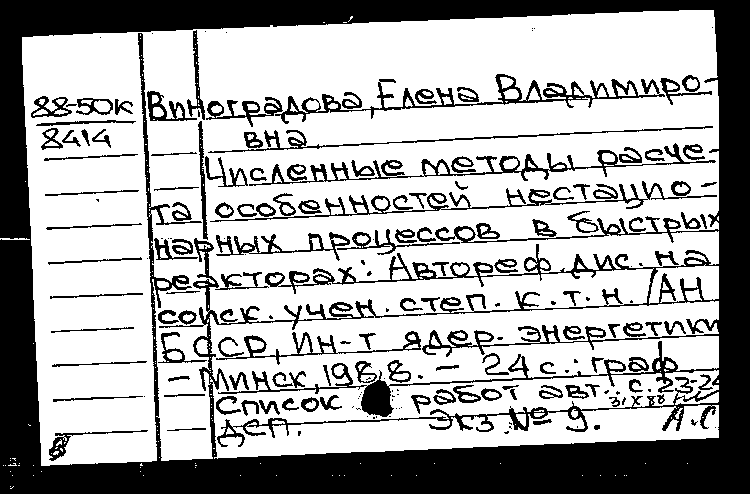 88-50К Виноградова, Елена Владимиро-
8414 вна.
Численные методы расче-
та особенностей нестацио-
нарных процессов в быстрых
реакторах: Автореф. дис. на
соиск. учен. степ. к.т.н. /АН
БССР, Ин-т ядер. энергетики
- Минск, 1988. - 24 с.: граф.
Список работ авт.: с. 23-24
31 X 88
ДСП. Экз. № 9. А.С